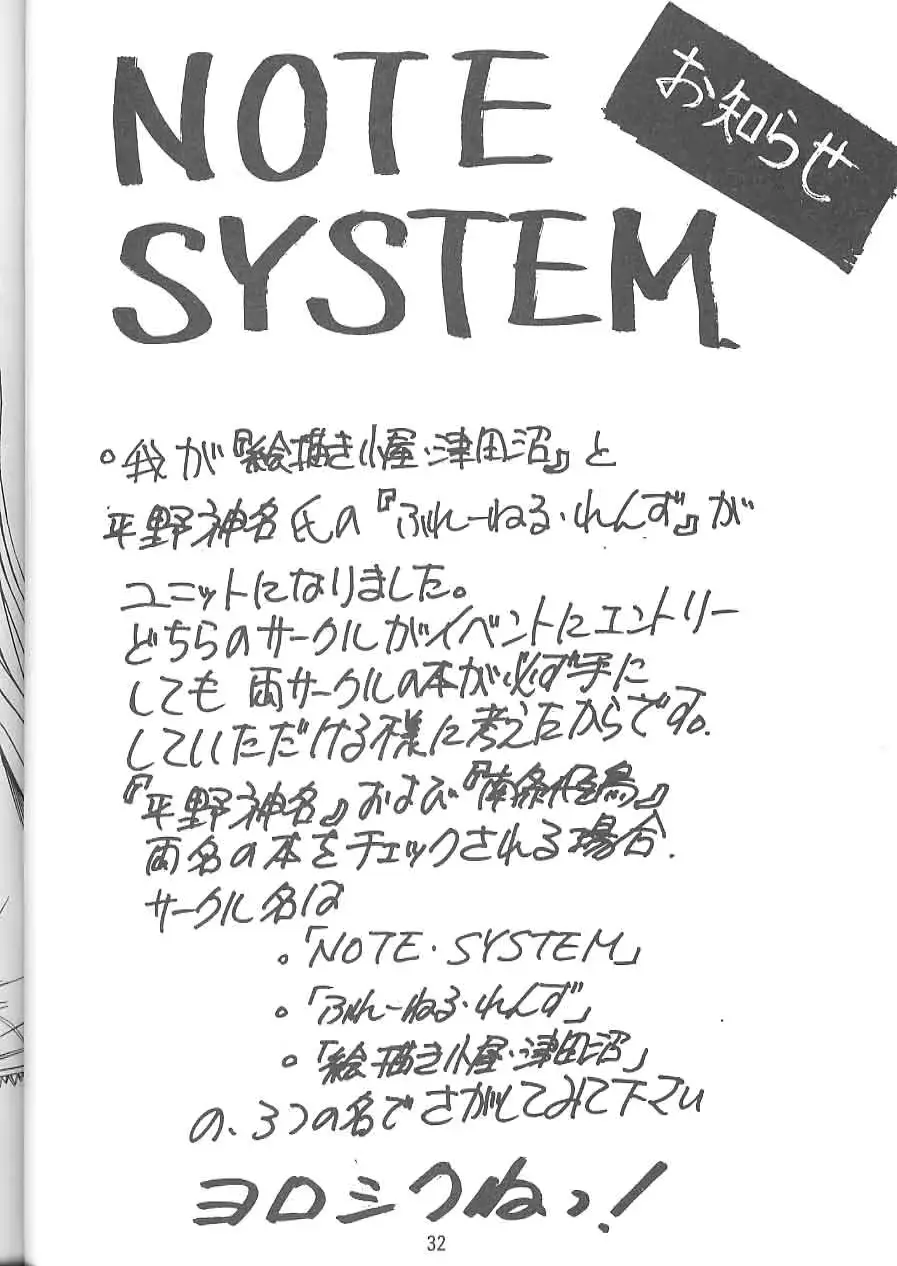 NOTE
SYSTEM
お知らせ
。我が『絵描き小屋・津田沼』と
平野神名氏の『ぶれーねる・れんず』が
ユニットになりました。
どちらのサークルがイベントにエントリー
しても 両サークルの本が必ず手に
していただける様に考えたからです。
『平野神名』および『南条怪鳥』
両名の本をチェックされる場合、
サークル名は
。「NOTE・SYSTEM」
。「ぶれーねる・れんず」
。「絵描き小屋・津田沼」
の、3つの名でさがしてみて下さい
ヨロシクねっ!
32